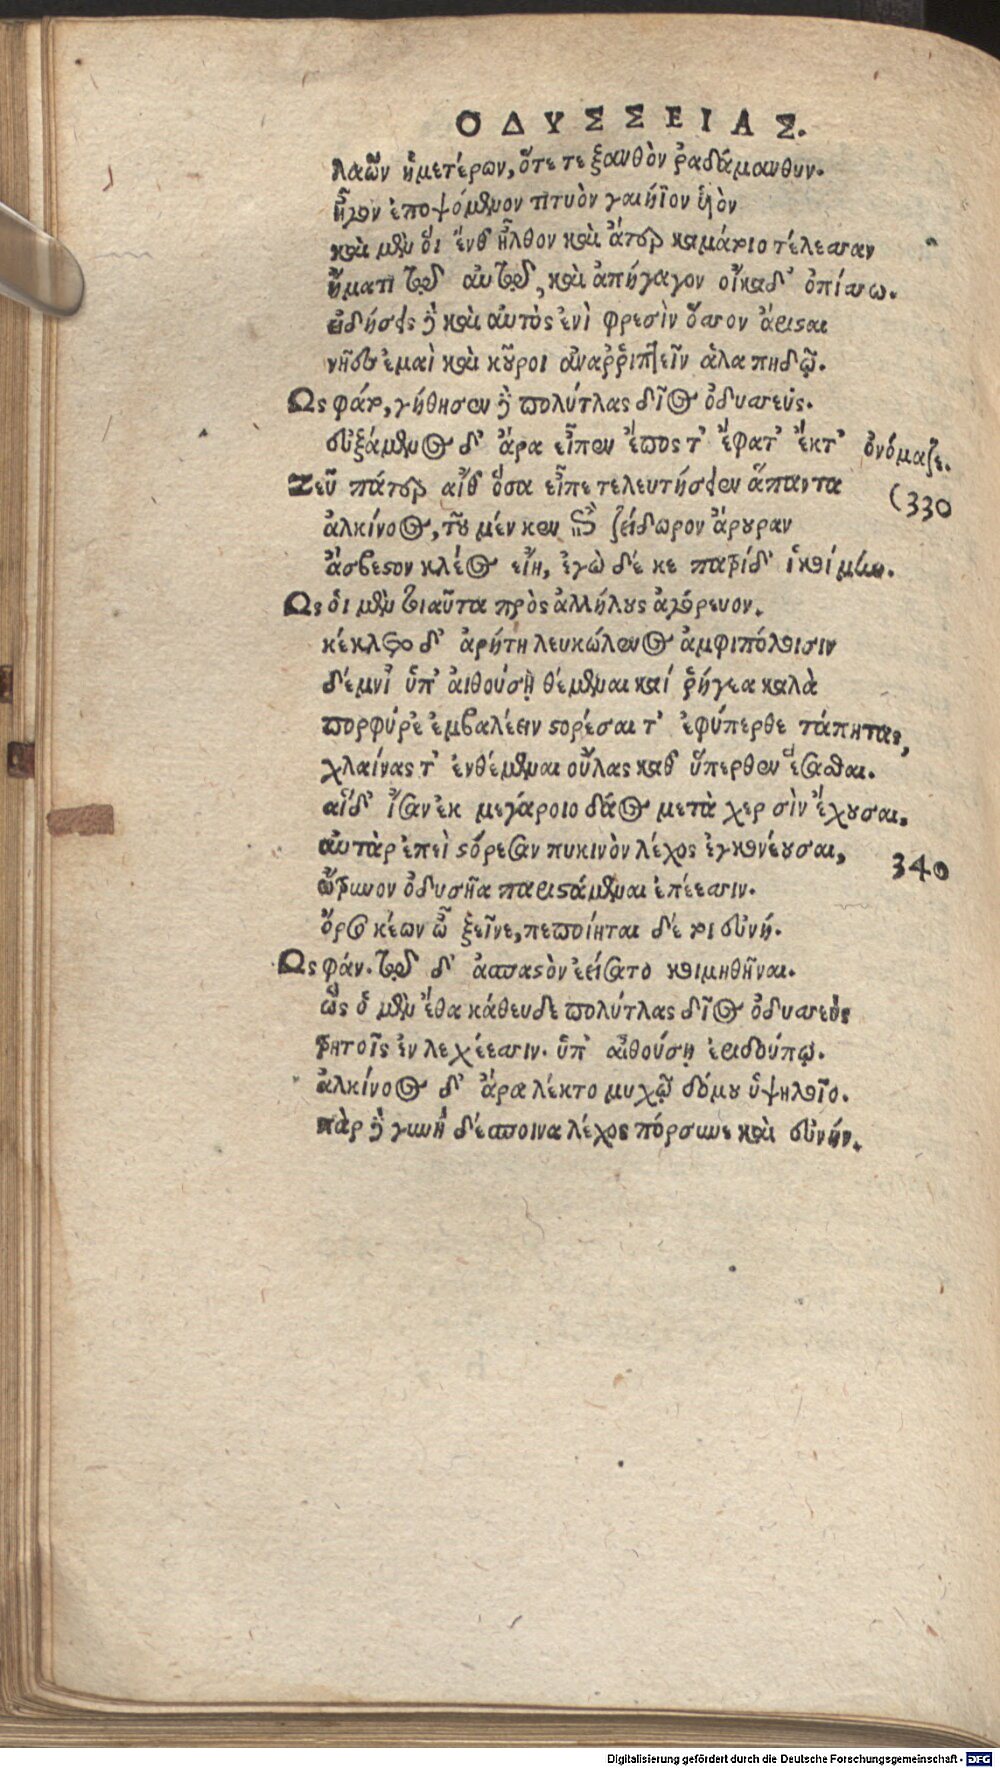 ΟΔΥΣΣΕΙΑΣ.
λαῶν ἡμετέρων, ὅτε τε ξανθὸν ῥαδάμανθυν.
ἦγον ἐποψόμενον τιτυὸν γαιήϊον υἱὸν
καὶ μὲν οἱ ἔνθ ἦλθον καὶ ἄτερ καμάτοιο τέλεσσαν
ἤματι τῷ αὐτῷ, καὶ ἀπήγαγον οἴκαδ' ὀπίσσω.
εἰδήσεις δὲ καὶ αὐτὸς ἐνὶ φρεσὶν ὅσσον ἄρισται
νῆες ἐμαὶ καὶ κοῦροι ἀναῤῥιπτεῖν ἅλα πηδῷ.
Ως φάτο, γήθησεν δὲ πολύτλας δῖος ὀδυσσεύς.
εὐξάμενος δ' ἄρα εἶπεν ἔπος τ' ἔφατ' ἔκτ' ὀνόμαζε.
Ζεῦ πάτερ αἴθ ὅσα εἶπε τελευτήσειεν ἅπαντα
(330
ἀλκίνοος, τοῦ μέν κεν ἐπὶ ζείδωρον ἄρουραν
ἄσβεστον κλέος εἴη, ἐγὼ δέ κε πατρίδ' ἱκοίμην.
Ως οἱ μὲν τοιαῦτα πρὸς ἀλλήλους ἀγόρευον.
κέκλετο δ' ἀρήτη λευκώλενος ἀμφιπόλοισιν
δέμνι' ὑπ' αἰθούσῃ θέμεναι καί ῥήγεα καλὰ
πορφύρε' ἐμβαλέειν στορέσαι τ' ἐφύπερθε τάπητας,
χλαίνας τ' ἐνθέμεναι οὔλας καθ ὕπερθεν ἕσασθαι.
αἱ δ' ἴσαν ἐκ μεγάροιο δάος μετὰ χερσὶν ἔχουσαι.
αὐτὰρ ἐπεὶ στόρεσαν πυκινὸν λέχος ἐγκονέουσαι,
340
ὤτρυνον ὀδυσῆα παριστάμεναι ἐπέεσσιν.
ὄρσο κέων ὦ ξεῖνε, πεποίηται δέ τοι εὐνή.
Ως φάν. τῷ δ' ἀσπαστὸν ἐείσατο κοιμηθῆναι.
ὣς ὁ μὲν ἔθα κάθευδε πολύτλας δῖος ὀδυσσεύς
τρητοῖς ἐν λεχέεσσιν. ὑπ' αἰθούσῃ ἐριδούπῳ.
ἀλκίνοος δ' ἄρα λέκτο μυχῷ δόμου ὑψηλοῖο.
πὰρ δὲ γυνὴ δέσποινα λέχος πόρσυνε καὶ εὐνήν.
Digitalisierung gefördert durch die Deutsche Forschungsgemeinschaft - DFG